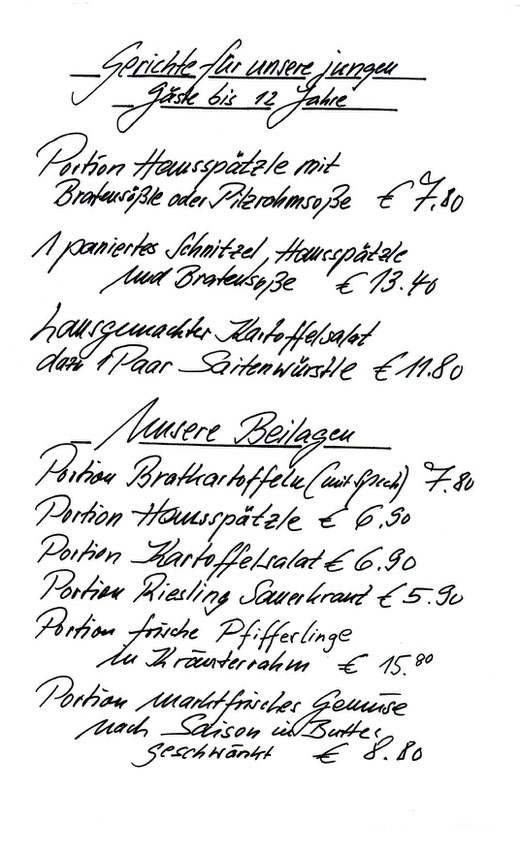 Gerichte für unsere jungen
Gäste bis 12 Jahre
Portion Hausspätzle mit
Bratensößle oder Pilzrahmsoße € 7.80
1 paniertes Schnitzel, Hausspätzle
und Bratensoße € 13.40
hausgemachter Kartoffelsalat
dazu 1 Paar Saitenwürstle € 11.80
Unsere Beilagen
Portion Bratkartoffeln (mit Speck) 7.80
Portion Hausspätzle € 6.90
Portion Kartoffelsalat € 6.90
Portion Riesling Sauerkraut € 5.90
Portion frische Pfifferlinge
in Kräuterrahm € 15.80
Portion marktfrisches Gemüse
nach Saison in Butter
geschwänkt € 8.80